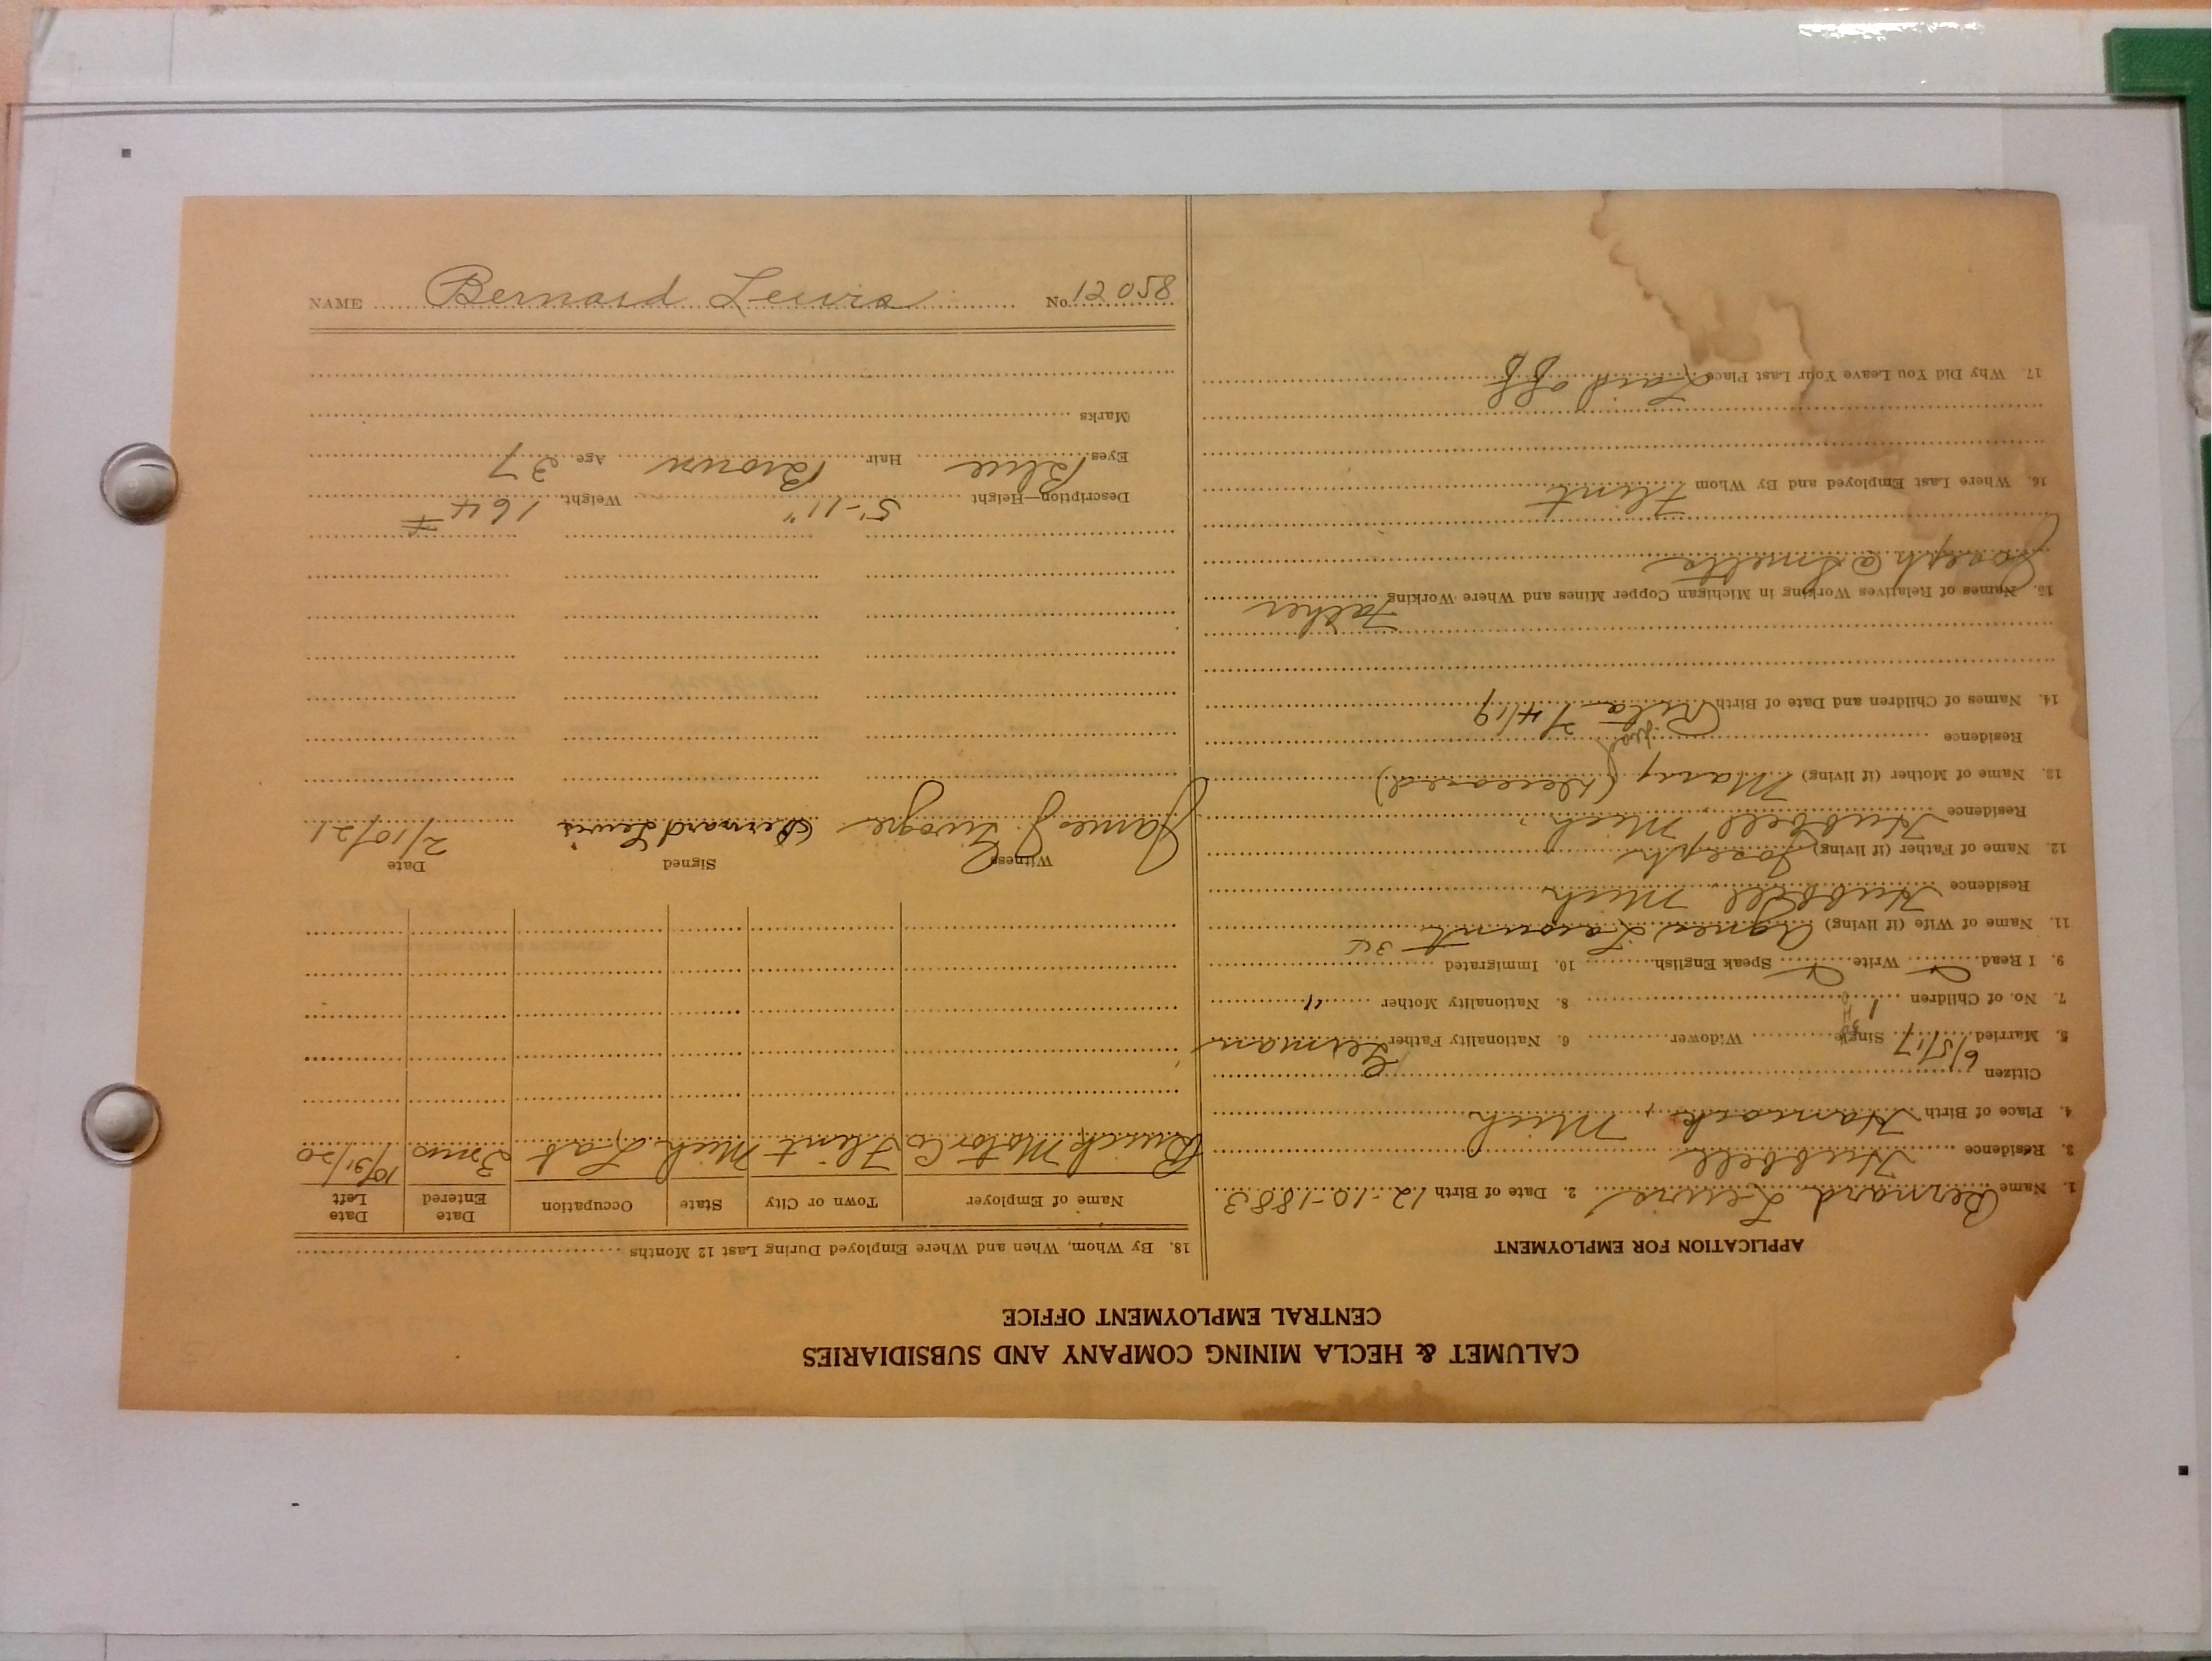 CALUMET & HECLA MINING COMPANY AND SUBSIDIARIES
CENTRAL EMPLOYMENT OFFICE
APPLICATION FOR EMPLOYMENT
1. Name Bernard Lewis 2. Date of Birth 12-10-1883
3. Residence Hubbell
4. Place of Birth Hancock, Mich
Citizen
5. Married 6/5/17 Single Widower 6. Nationality Father German
7. No. of Children 1 8. Nationality Mother "
9. I Read Write Speak English 10. Immigrated
11. Name of Wife (if living) Agnes
Residence Hubbell Mich
12. Name of Father (if living) Joseph
Residence Hubbell Mich.
13. Name of Mother (if living) Mary (deceased)
Residence
14. Names of Children and Date of Birth
15. Names of Relatives Working in Michigan Copper Mines and Where Working Father
Joseph @ Smelter
16. Where Last Employed and By Whom Flint
17. Why Did You Leave Your Last Place Laid off
18. By Whom, When and Where Employed During Last 12 Months
Name of Employer Town or City State Occupation Date Entered Date Left
Buick Motor Co Flint Mich Lab 3 mos 10/31/20
Witness Signed Date
James J. Bernard Lewis 2/10/21
Description—Height 5'-11" Weight 164#
Eyes Blue Hair Brown Age 37
Marks
NAME Bernard Lewis No. 12058